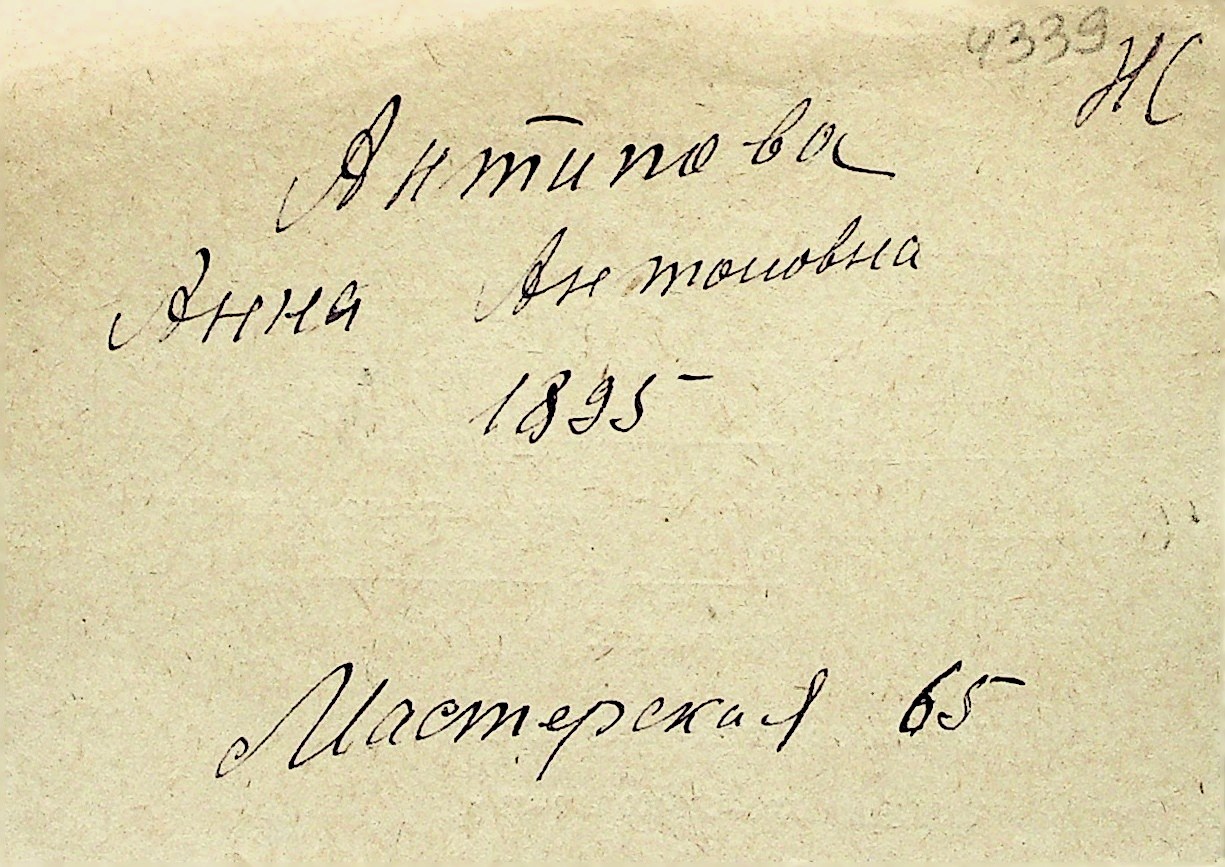 4339
Ж
Антипова
Анна Антоновна
1895
Мастерская 65